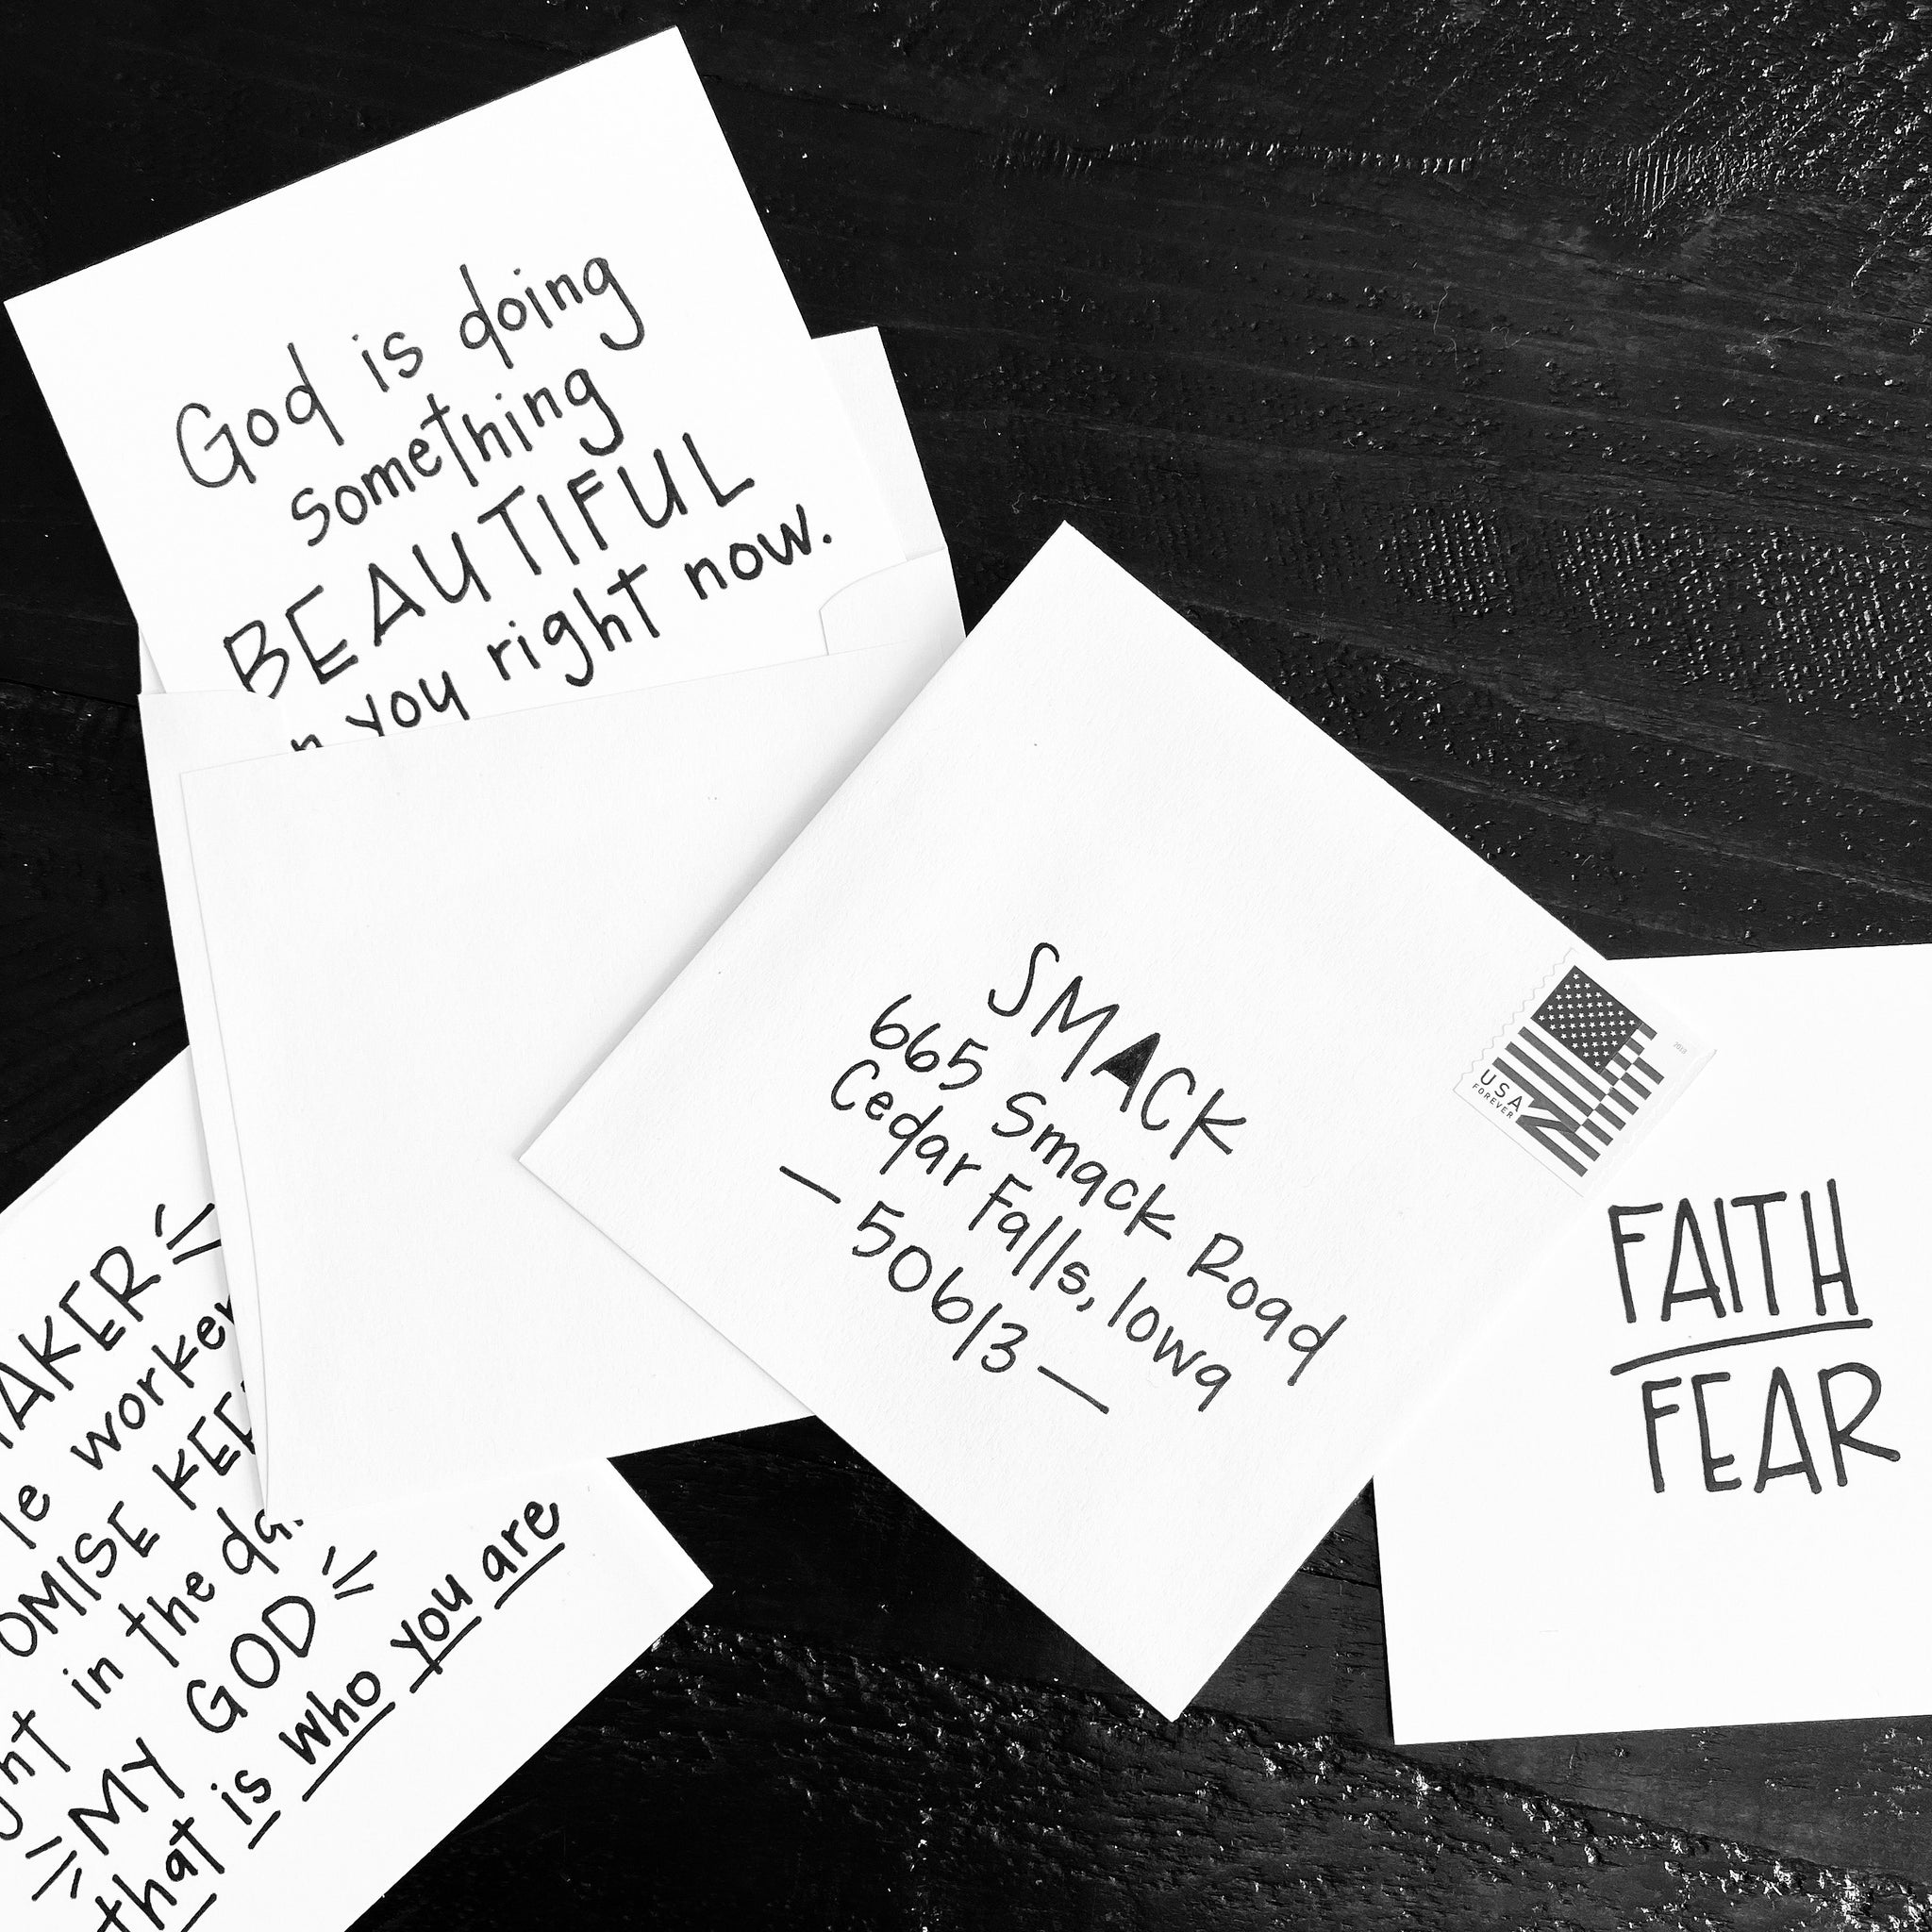 God is doing
something
BEAUTIFUL
you right now.
SMACK
665 Smack Road
Cedar Falls, Iowa
— 50613 —
USA
FOREVER
2018
FAITH
FEAR
in the
MY GOD
that is who you are